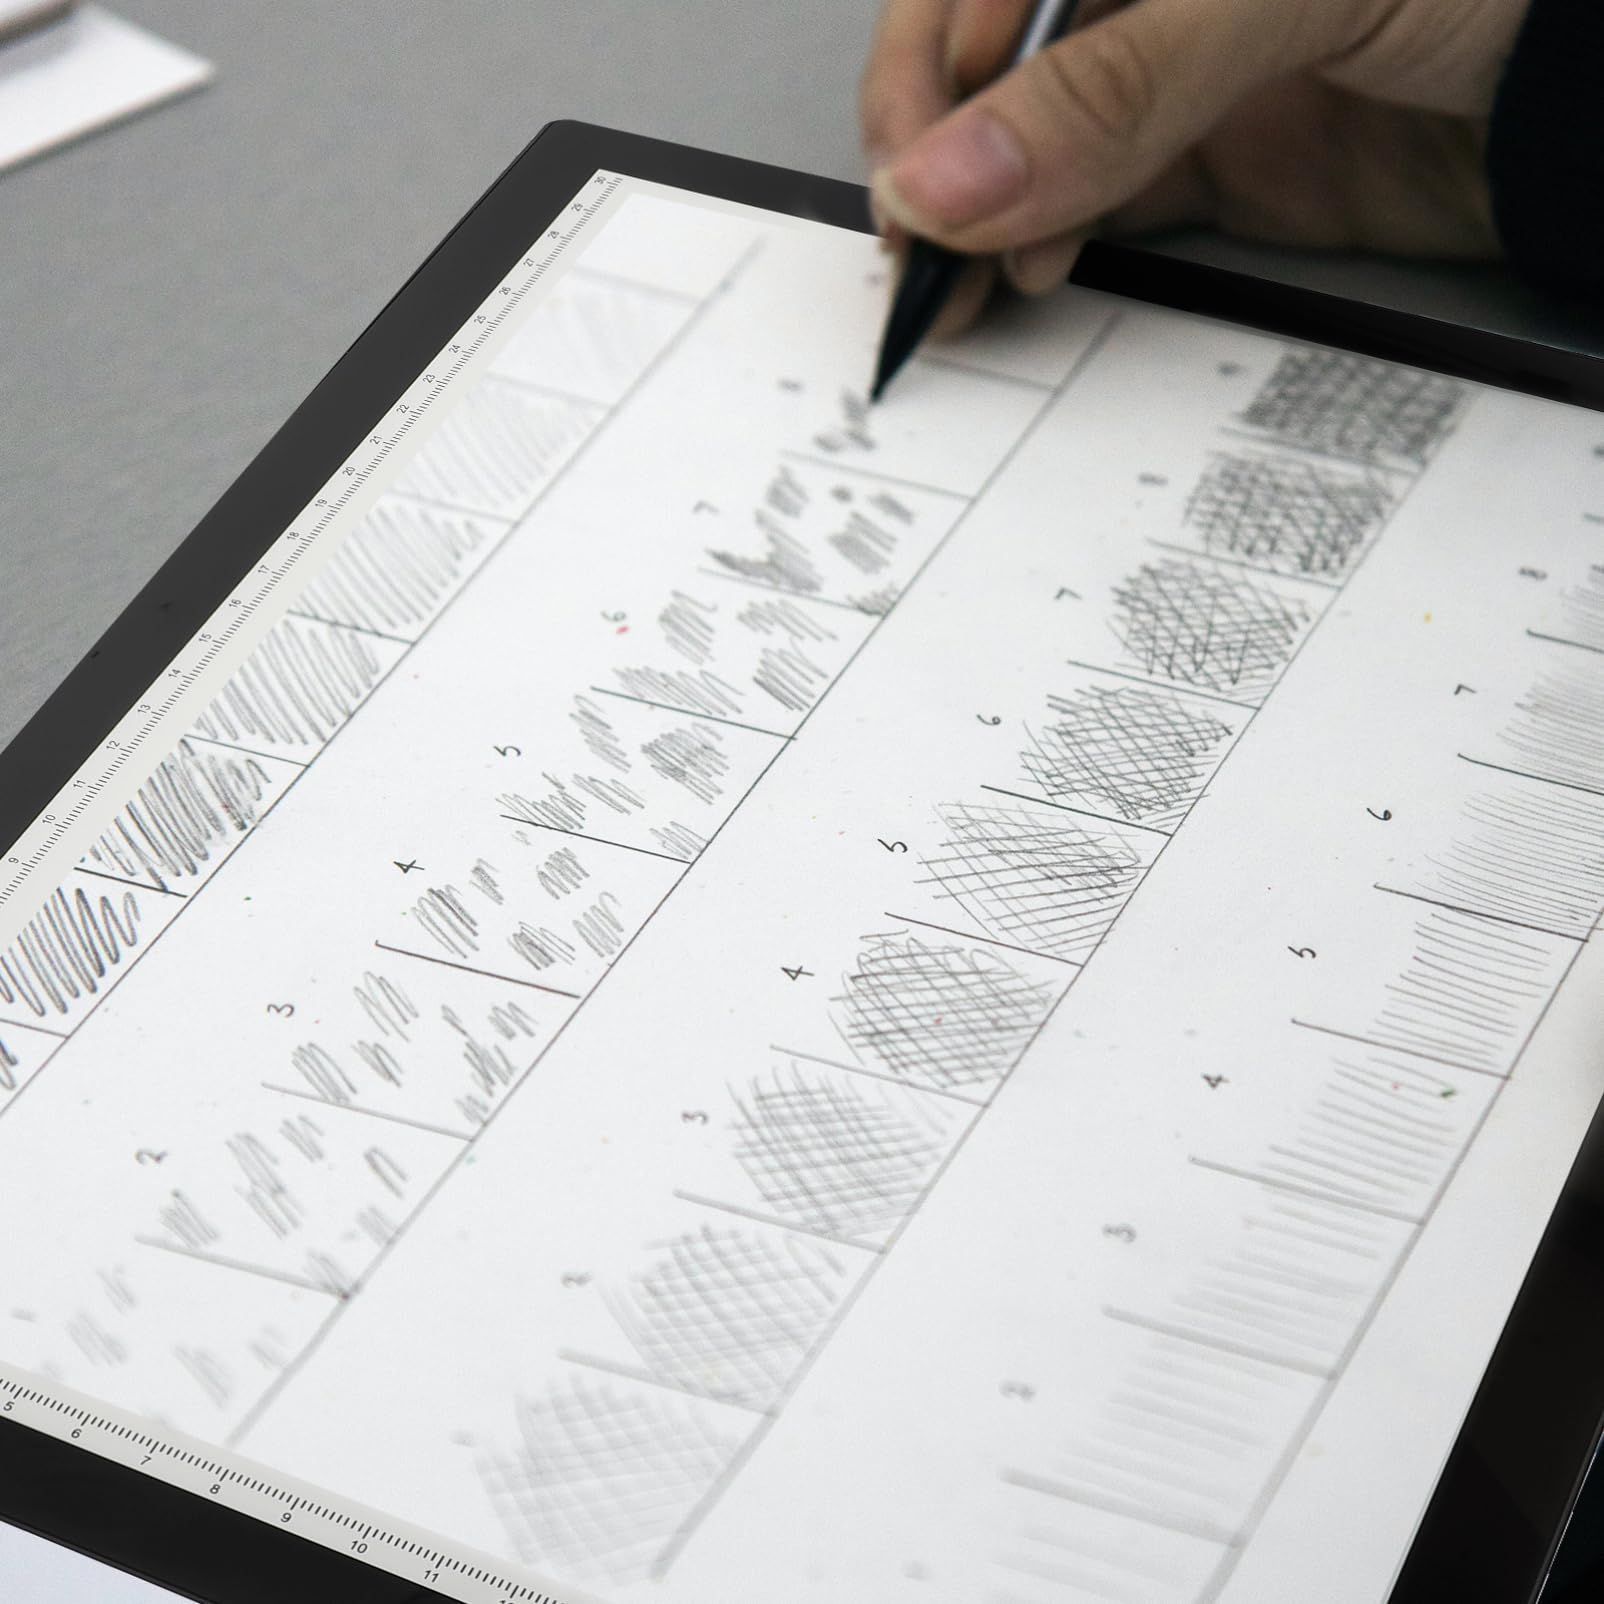 30 29 28 27 26 25 24 23 22 21 20 19 18 17 16 15 14 13 12 11 10 9
8 7 6 5 4 3 2
9 8 7 6 5 4 3 2
8 7 6 5 4 3 2
5 6 7 8 9 10 11